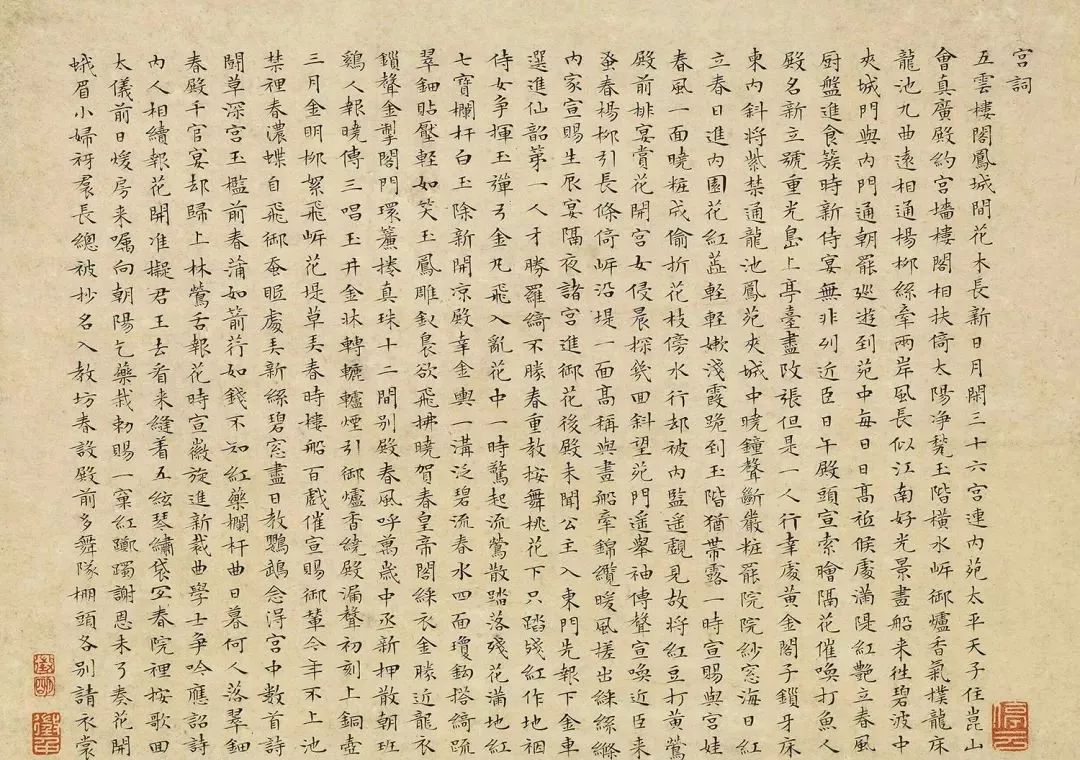 宮詞
五雲樓閣鳳城間花木長新日月閑三十六宮連內苑太平天子住崑山
會真廣殿約宮墻樓閣相扶倚太陽净甃玉階橫水岸御爐香氣撲龍床
龍池九曲遠相通楊柳絲牽兩岸風長似江南好光景畫船来往碧波中
夾城門與內門通朝罷廵遊到苑中每日日髙祗候處滿隄紅艷立春風
厨盤進食簇時新侍宴無非列近臣日午殿頭宣索鱠隔花催喚打魚人
殿名新立號重光島上亭臺盡改張但是一人行幸處黃金閣子鎖牙床
東內斜將紫禁通龍池鳳苑夾城中曉鐘聲斷嚴粧罷院院紗窓海日紅
立春日進內園花紅蕋輕輕嫩淺霞跪到玉階猶帶露一時宣賜與宮娃
春風一面曉粧成偷折花枝傍水行却被內監遥覷見故將紅豆打黃鶯
殿前排宴賞花開宮女侵晨探幾回斜望苑門遥舉袖傳聲宣喚近臣来
蚤春楊柳引長條倚岸沿堤一面髙稱與畫船牽錦纜暖風搓出綵絲縧
內家宣賜生辰宴隔夜諸宮進御花後殿未聞公主入東門先報下金車
選進仙韶第一人才勝羅綺不勝春重教按舞桃花下只踏殘紅作地裀
侍女爭揮玉彈弓金丸飛入亂花中一時驚起流鶯散踏落殘花滿地紅
七寶欄杆白玉除新開凉殿幸金輿一溝泛碧流春水四面瓊鈎搭綺疏
翠鈿貼靨輕如笑玉鳳雕釵裊欲飛拂曉賀春皇帝閣綵衣金勝近龍衣
鎖聲金掣閤門環簾捲真珠十二間別殿春風呼萬歲中丞新押散朝班
鷄人報曉傳三唱玉井金牀轉轆轤煙引御爐香繞殿漏聲初刻上銅壺
三月金明柳絮飛岸花堤草弄春時樓船百戲催宣賜御輦今年不上池
禁裡春濃蝶自飛御蚕眠處弄新絲碧窓盡日教鸚鵡念得宮中數首詩
鬪草深宮玉檻前春蒲如箭荇如錢不知紅藥欄杆曲日暮何人落翠鈿
春殿千官宴却歸上林鶯舌報花時宣徽旋進新裁曲學士爭吟應詔詩
內人相續報花開准擬君王去看来縫着五絃琴繡袋宜春院裡按歌回
太儀前日煖房来囑向朝陽乞藥栽勅賜一窠紅躑躅謝恩未了奏花開
蛾眉小婦砑裠長總被抄名入教坊春設殿前多舞隊棚頭各別請衣裳
停雲
徵明